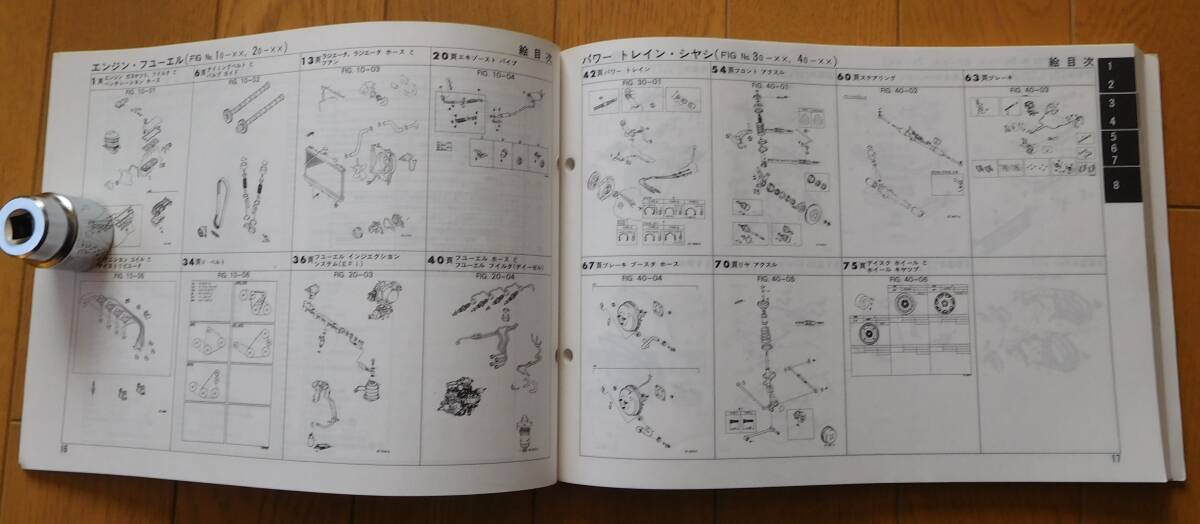 エンジン・フユーエル(FIG № 10-××, 20-××)
絵 目 次
1頁エンジン ガスケツト, フイルタ と
ベンチレーシヨン ホース
FIG. 10-01
6頁タイミングベルト と
バルブ ガイド
FIG. 10-02
13頁ラジエータ, ラジエータ ホース と
フアン
FIG. 10-03
20頁エキゾースト パイプ
FIG. 10-04
イグニシヨン コイル と
デイストリビユータ
FIG. 10-05
34頁V ベルト
FIG. 10-06
36頁フユーエル インジエクシヨン
システム(EFI)
FIG. 20-03
40頁フユーエル ホース と
フユーエル フイルタ(デイーゼル)
FIG. 20-04
16
パワー トレイン・シヤシ(FIG № 30-××, 40-××)
絵 目 次
42頁パワー トレイン
FIG. 30-01
54頁フロント アクスル
FIG. 40-01
60頁ステアリング
FIG. 40-02
63頁ブレーキ
FIG. 40-03
67頁ブレーキ ブースタ ホース
FIG. 40-04
70頁リヤ アクスル
FIG. 40-05
75頁デイスク ホイール と
ホイール キヤツプ
FIG. 40-06
1
2
3
4
5
6
7
8
17